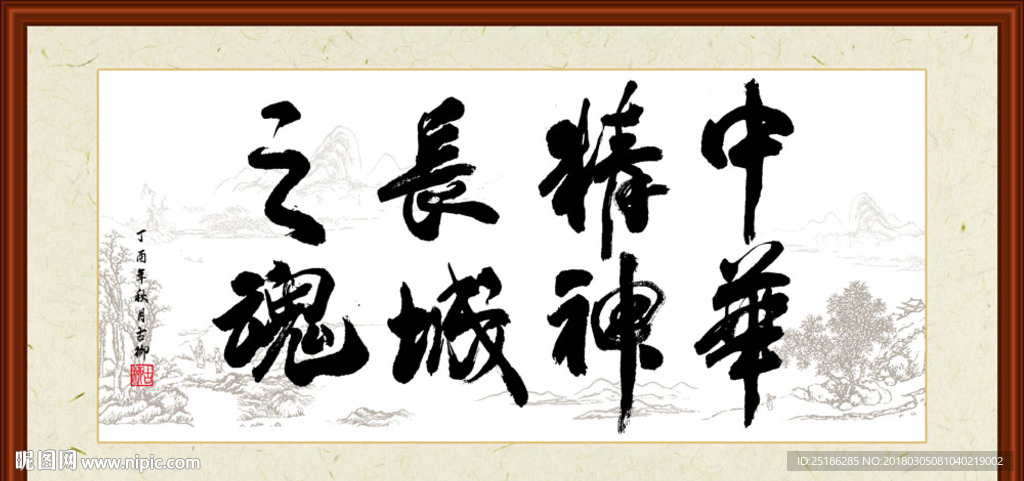 中華
精神
長城
之魂
丁酉年秋月吉柳
昵图网 www.nipic.com
ID:25186285 NO:20180305081040219002